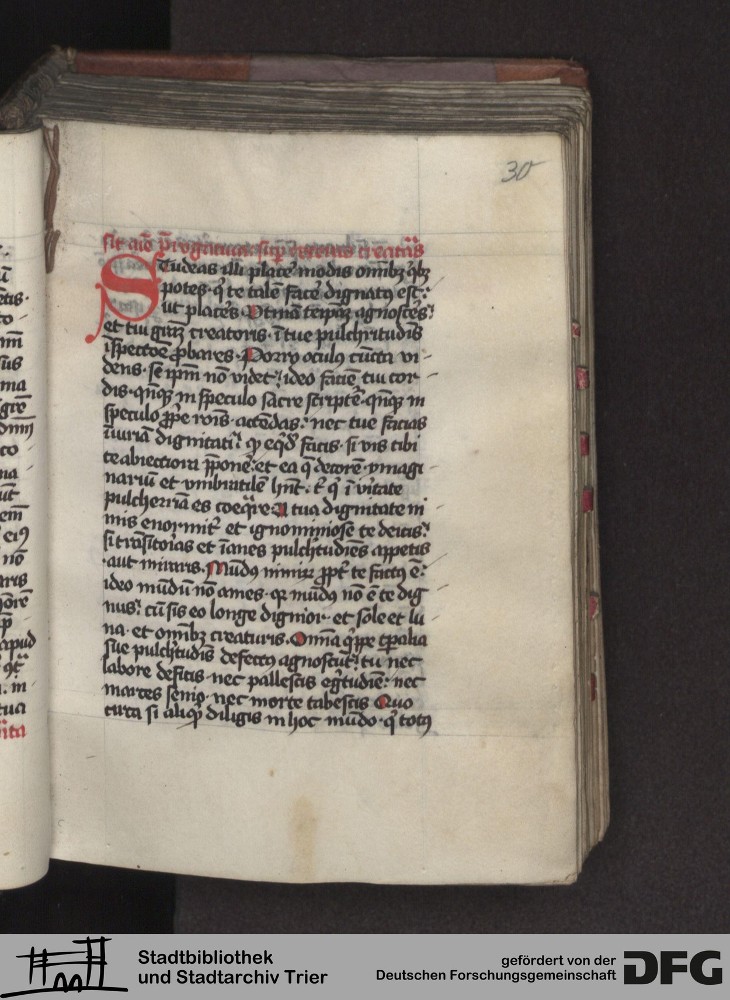 30
sit aīe p̄rogatiua sup̄ ceteras creatās
Studeas illi placeˀ modis omībꝫ qˀbꝫ
potes · qˀ te talē faceˀ dignatꝰ est:
ut places Utinā teip̄m agnosces
et tui gr̄az creatoris · ī tue pulchritudīs
īspectōe ꝓbares · Porro oculꝰ cūcta vi-
dens · se ip̄m nō videt: ideo faciē tui cor-
dis · qn̄qꝫ in speculo sacre scripteˀ · qn̄qꝫ in
speculo ꝓpe rōnis · accēdas: nec tue facias
īiuriā dignitati: qꝫ eqˀdē facis · si vis tibi
te abiectiora p̄ponē: et ea q̄ decorē ymagi-
nariū et vmbratilē hn̄t · t qˀ ī vˀitate
pulcherrīa es coeqˀre A tua dignitate ni
mis enormitˀ et ignominiose te deicis:
si trāsitorias et īanes pulchˀtudīes appetis
aut miraris. Mūdꝰ nimirꝫ ꝓptˀ te factꝰ ē:
ideo mūdū nō ames · qꝛ mūdꝰ nō ē te dig
nus: cū sis eo longe dignior · et sole et lu
na · et omībꝫ creaturis. Omīa qˀppe tꝑalia
sue pulchˀtudīs defectū agnoscūt: tu nec
labore deficis · nec pallescis egˀtudīe: nec
marces senio · nec morte tabescis Quo
circa si aliqˀd diligis in hoc mūdo · qˀ totꝰ
Stadtbibliothek
und Stadtarchiv Trier
gefördert von der
Deutschen Forschungsgemeinschaft
DFG